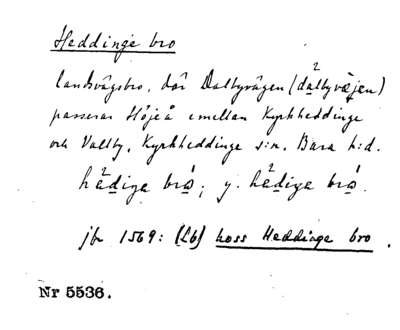 Heddinge bro
landsvägsbro, där Dalbyvägen (dalbyvæjen)
passerar Höjeå emellan Kyrkheddinge
och Vallby, Kyrkheddinge s:n. Bara h:d.
hädiga bro; y. hädiga bro.
jfr 1569: (Lb) hoss Heddinge bro.
Nr 5536.